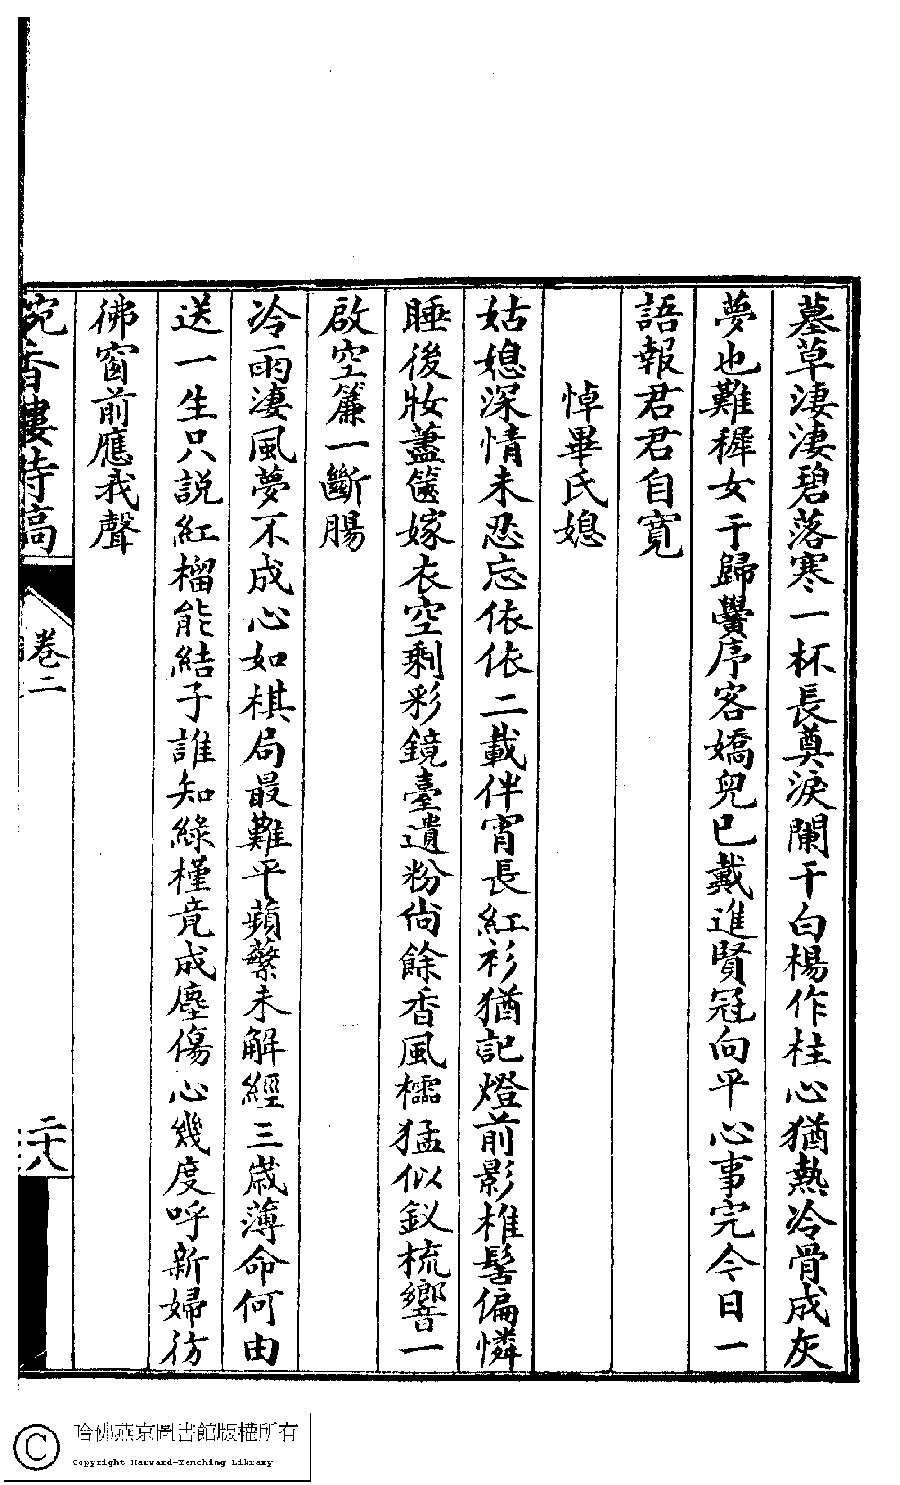 墓草淒淒碧落寒一杯長奠淚闌干白楊作柱心猶熱冷骨成灰
夢也難穉女于歸黌序客嬌兒已戴進賢冠向平心事完今日一
語報君君自寬
悼畢氏媳
姑媳深情未忍忘依依二載伴宵長紅衫猶記燈前影椎髻偏憐
睡後妝藎篋嫁衣空剩彩鏡臺遺粉尙餘香風櫺猛似釵梳響一
啟空簾一斷腸
冷雨淒風夢不成心如棋局最難平蘋蘩未解經三歲薄命何由
送一生只説紅榴能結子誰知綠槿竟成塵傷心幾度呼新婦彷
佛窗前應我聲
宛香樓詩稿
卷二
二十八
哈佛燕京圖書館版權所有
Copyright Harvard-Yenching Library